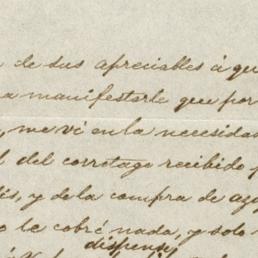 de sus apreciables á qu
a manifestarle que por
, me ví en la necesidad
l del corrotage recibido
és, y de la compra de azu
o le cobré nada, y solo
dispense